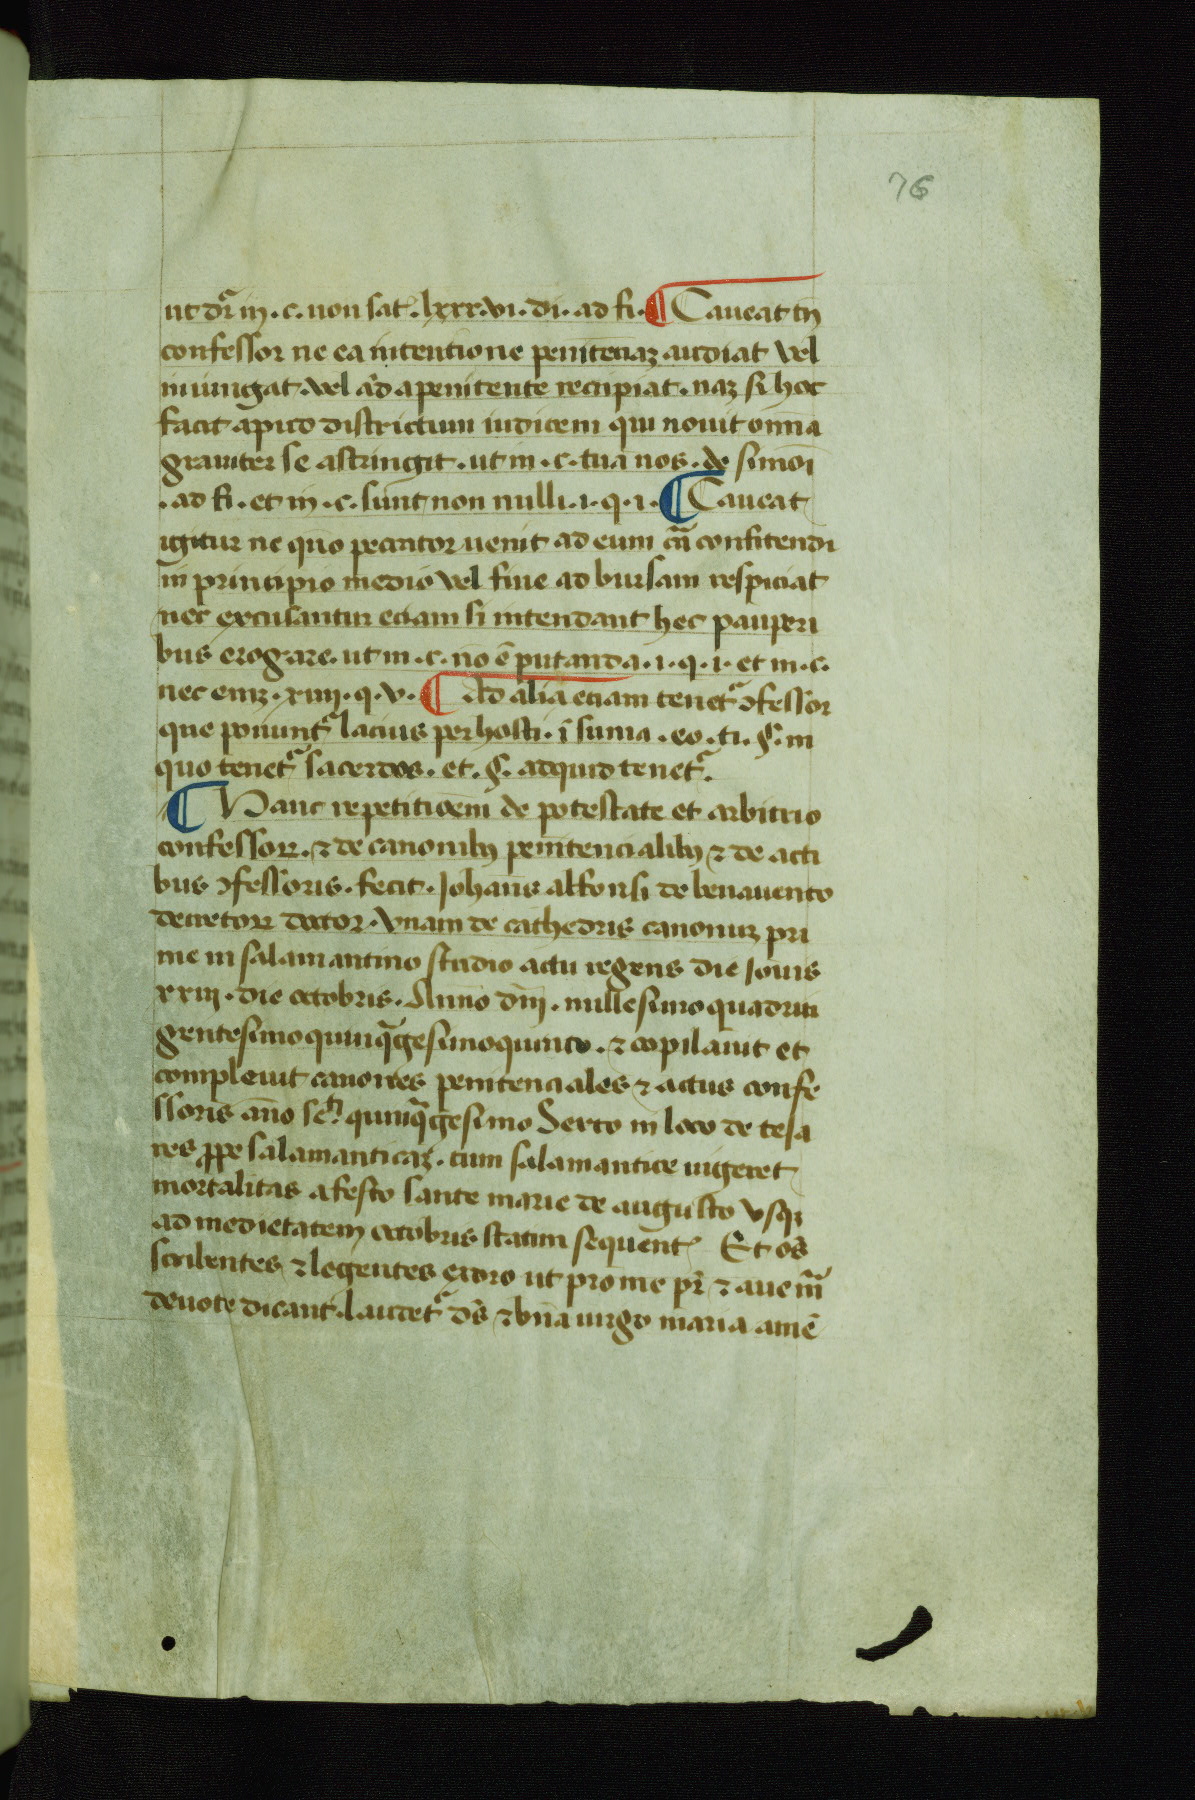 76
ut dr̃ in .c. non sat̃. lxxx.vi. di. ad fi. ¶ Caueat tñ
confessor ne ea intentione penitenciaꝫ audiat vel
iniungat vel aͥd a penitente recipiat. naꝫ si hoc
facit apud districtum iudicem qui nouit om̃ia
grauiter se astringit. ut in .c. tua nos. de simoĩ
. ad fi. et in .c. sunt non nulli .i. q. i. ¶ Caueat
igitur ne qñ peccator uenit ad eum cã confitendi
in principio medio vel fine ad bursam respiciat
nec excusantur eciam si intendant hec pauperi
bus erogare. ut in .c. nõ ẽ putanda .i. q. i. et in .c.
nec eniꝫ .xiiii. q. v. ¶ Ad alia eciam tenet᷑ ↄfessor
que ponunt᷑ lacius per hosti. ĩ suma. eo. ti. §. in
quo tenet᷑ sacerdos. et. §. ad quid tenet᷑.
¶ Hanc repeticiõem de potestate et arbitrio
confessorꝝ. ⁊ de canonibꝰ penitencialibꝰ ⁊ de acti
bus ↄfessoris. fecit. Johañs alfonsi de benauento
decretorꝝ doctor. vnam de cathedris canonuꝫ pri
me in salamantino studio actu regens die Jouis
xxiii. die octobris. Anno dñi. millesimo quadrin
gentesimo quinqᵃgesimo quinto. ⁊ copilauit et
compleuit canones penitenciales ⁊ actus confe
ssoris año sc̃ꝫ quinqᵃgesimo Sexto in loco de teja
res ꝓpe salamanticaꝫ. cum salamantice uigeret
mortalitas a festo sante marie de augusto vsqꝫ
ad medietatem octobris statim sequent᷑ Et oẽs
scribentes ⁊ legentes exoro ut pro me pr̃ ⁊ aue mͣ
deuote dicant. laudet᷑ dẽs ⁊ bñã uirgo maria amẽ